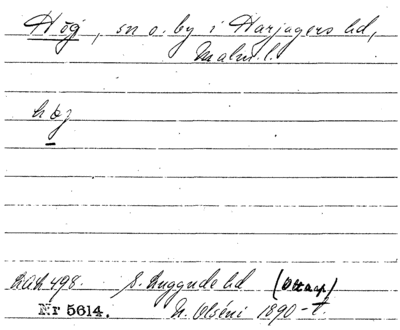 Hög, sn o. by i Harjagers hd,
Malm. l.
høj
DAL 498. S. Luggude hd (Ottarp)
Nr 5614. N. Olséni 1890-t.